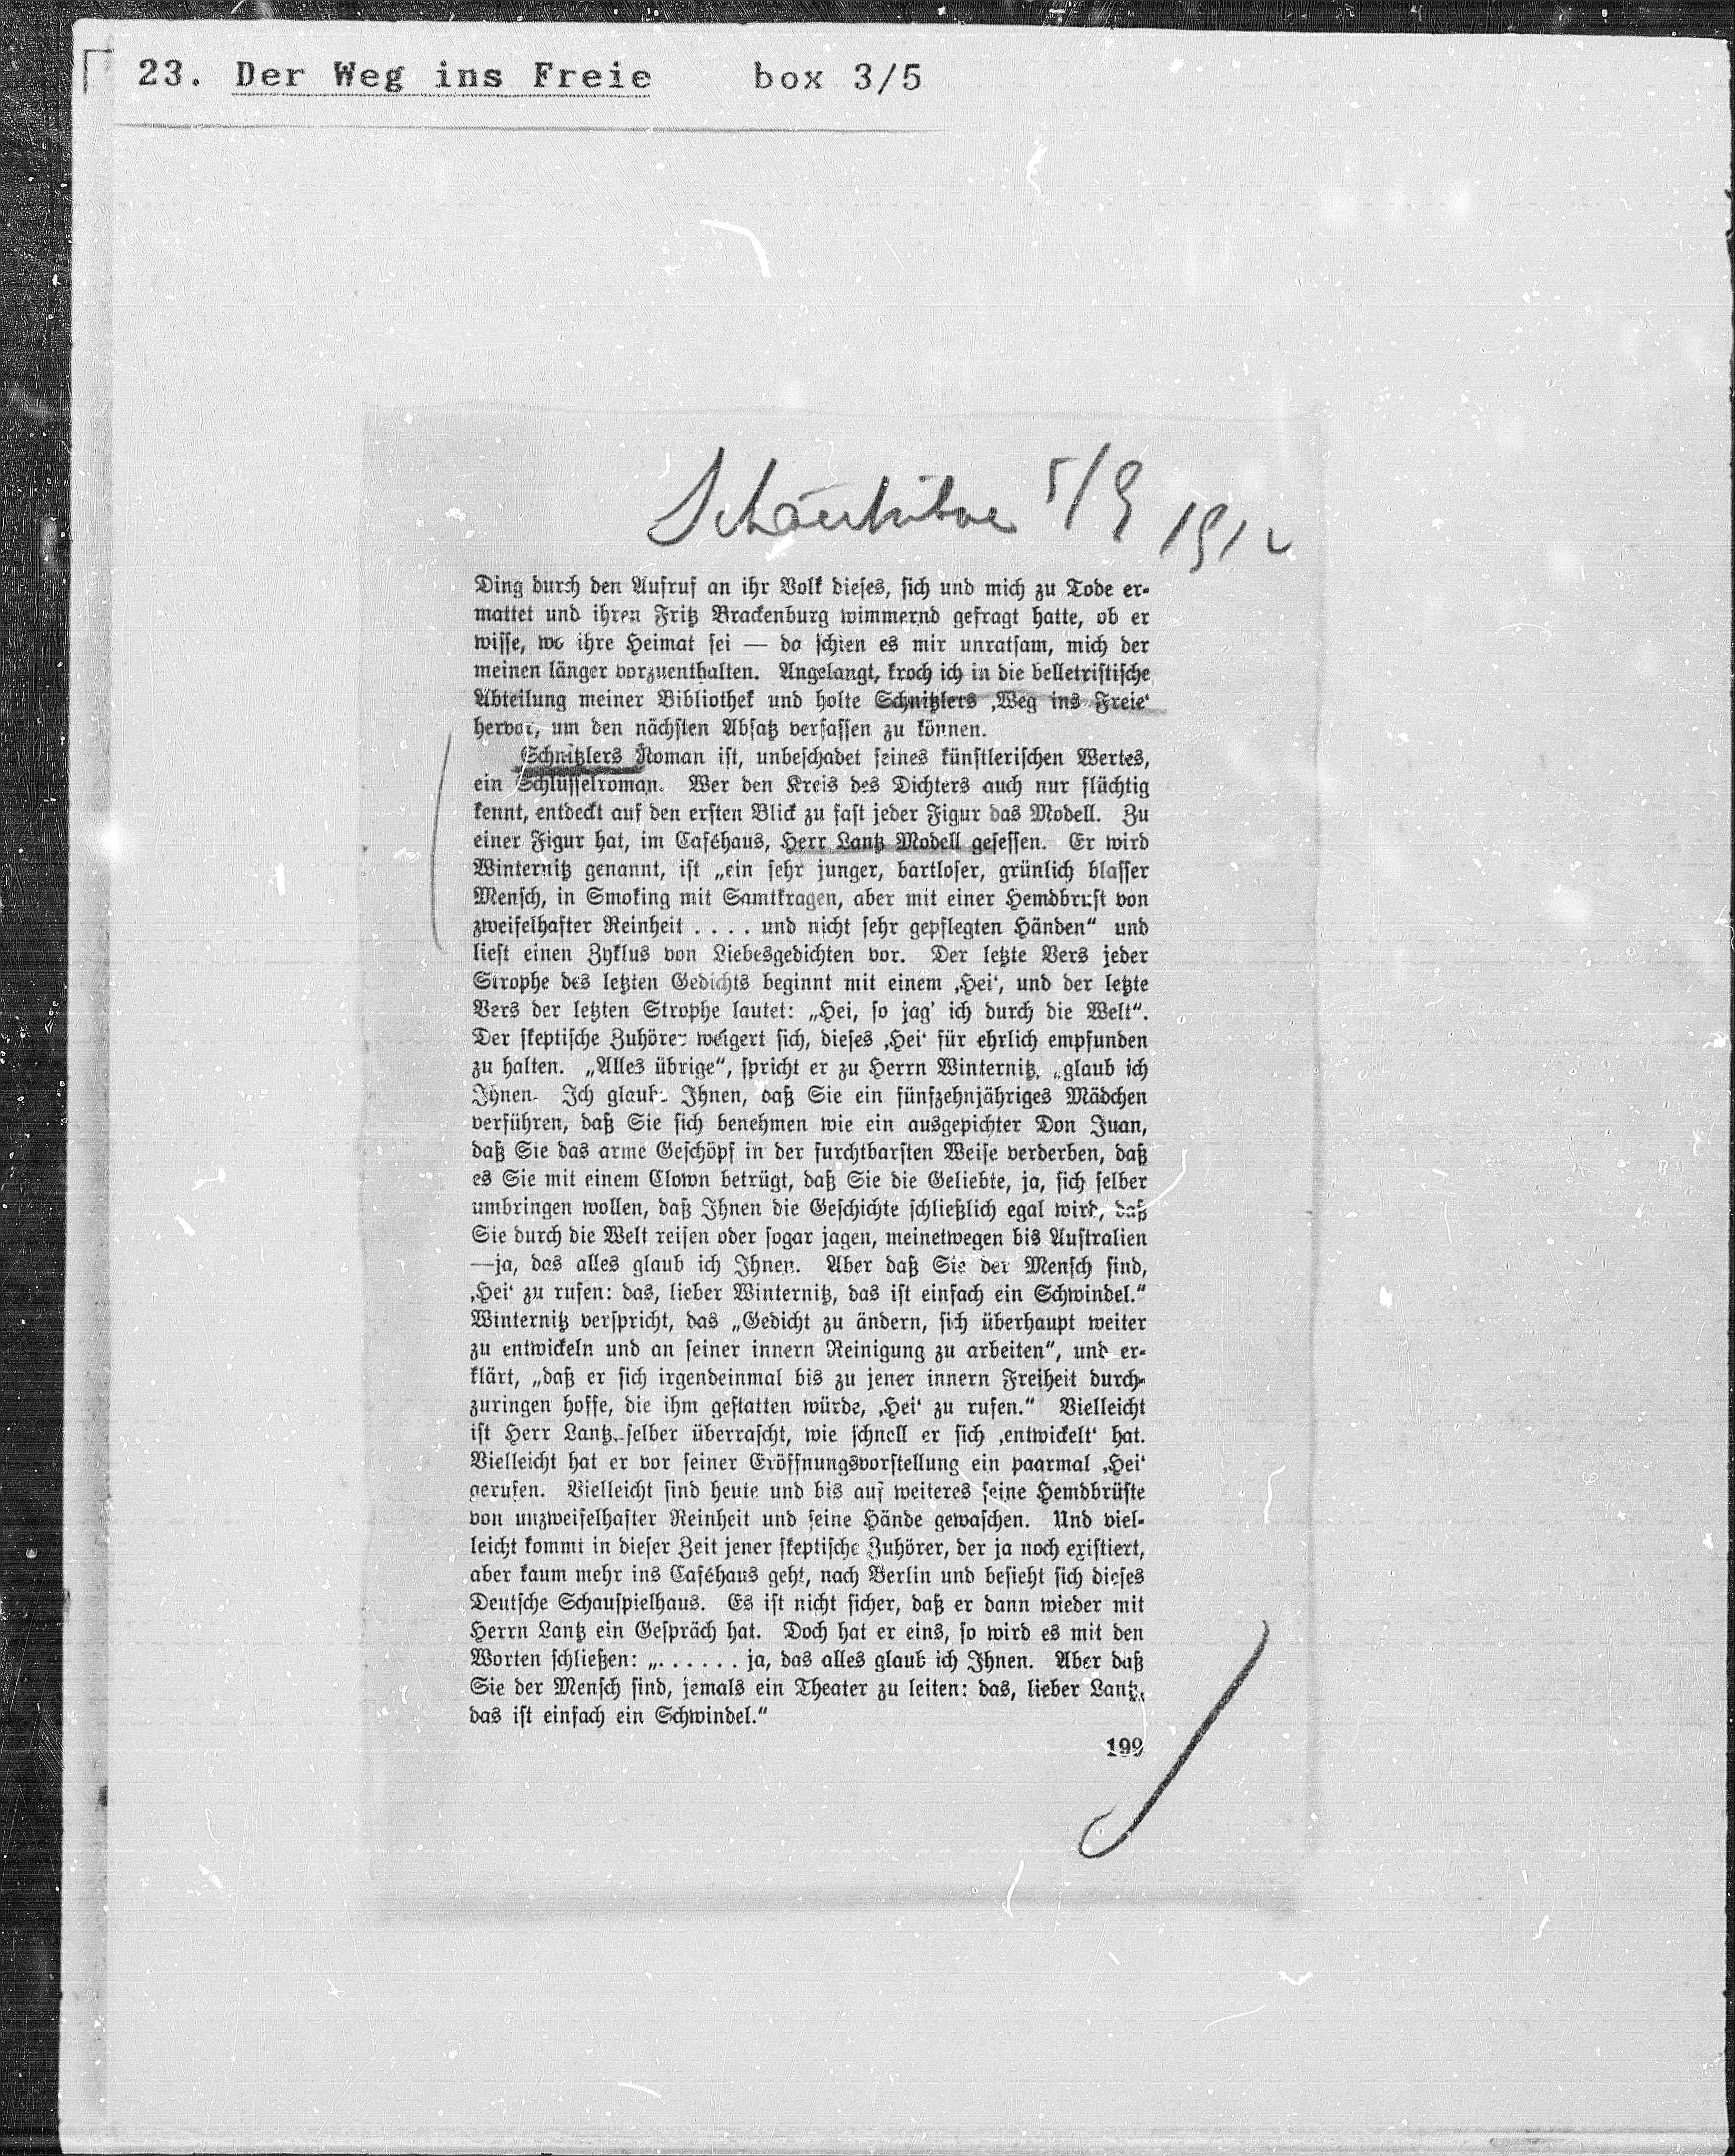 23. Der Weg ins Freie box 3/5
Schaubühne 5/9 1912
Ding durch den Aufruf an ihr Volk dieses, sich und mich zu Tode er-
mattet und ihren Fritz Brackenburg wimmernd gefragt hatte, ob er
wisse, wo ihre Heimat sei — da schien es mir unratsam, mich der
meinen länger vorzuenthalten. Angelangt, kroch ich in die belletristische
Abteilung meiner Bibliothek und holte Schnitzlers ‚Weg ins Freie‘
hervor, um den nächsten Absatz verfassen zu können.
Schnitzlers Roman ist, unbeschadet seines künstlerischen Wertes,
ein Schlüsselroman. Wer den Kreis des Dichters auch nur flüchtig
kennt, entdeckt auf den ersten Blick zu fast jeder Figur das Modell. Zu
einer Figur hat, im Caféhaus, Herr Lantz Modell gesessen. Er wird
Winternitz genannt, ist „ein sehr junger, bartloser, grünlich blasser
Mensch, in Smoking mit Samtkragen, aber mit einer Hemdbrust von
zweifelhafter Reinheit . . . . und nicht sehr gepflegten Händen“ und
liest einen Zyklus von Liebesgedichten vor. Der letzte Vers jeder
Strophe des letzten Gedichts beginnt mit einem ‚Hei‘, und der letzte
Vers der letzten Strophe lautet: „Hei, so jag’ ich durch die Welt“.
Der skeptische Zuhörer weigert sich, dieses ‚Hei‘ für ehrlich empfunden
zu halten. „Alles übrige“, spricht er zu Herrn Winternitz, „glaub ich
Ihnen. Ich glaube Ihnen, daß Sie ein fünfzehnjähriges Mädchen
verführen, daß Sie sich benehmen wie ein ausgepichter Don Juan,
daß Sie das arme Geschöpf in der furchtbarsten Weise verderben, daß
es Sie mit einem Clown betrügt, daß Sie die Geliebte, ja, sich selber
umbringen wollen, daß Ihnen die Geschichte schließlich egal wird, daß
Sie durch die Welt reisen oder sogar jagen, meinetwegen bis Australien
—ja, das alles glaub ich Ihnen. Aber daß Sie der Mensch sind,
‚Hei‘ zu rufen: das, lieber Winternitz, das ist einfach ein Schwindel.“
Winternitz verspricht, das „Gedicht zu ändern, sich überhaupt weiter
zu entwickeln und an seiner innern Reinigung zu arbeiten“, und er-
klärt, „daß er sich irgendeinmal bis zu jener innern Freiheit durch-
zuringen hoffe, die ihm gestatten würde, ‚Hei‘ zu rufen.“ Vielleicht
ist Herr Lantz selber überrascht, wie schnell er sich ‚entwickelt‘ hat.
Vielleicht hat er vor seiner Eröffnungsvorstellung ein paarmal ‚Hei‘
gerufen. Vielleicht sind heute und bis auf weiteres seine Hemdbrüste
von unzweifelhafter Reinheit und seine Hände gewaschen. Und viel-
leicht kommt in dieser Zeit jener skeptische Zuhörer, der ja noch existiert,
aber kaum mehr ins Caféhaus geht, nach Berlin und besieht sich dieses
Deutsche Schauspielhaus. Es ist nicht sicher, daß er dann wieder mit
Herrn Lantz ein Gespräch hat. Doch hat er eins, so wird es mit den
Worten schließen: „. . . . . . ja, das alles glaub ich Ihnen. Aber daß
Sie der Mensch sind, jemals ein Theater zu leiten: das, lieber Lantz,
das ist einfach ein Schwindel.“
199